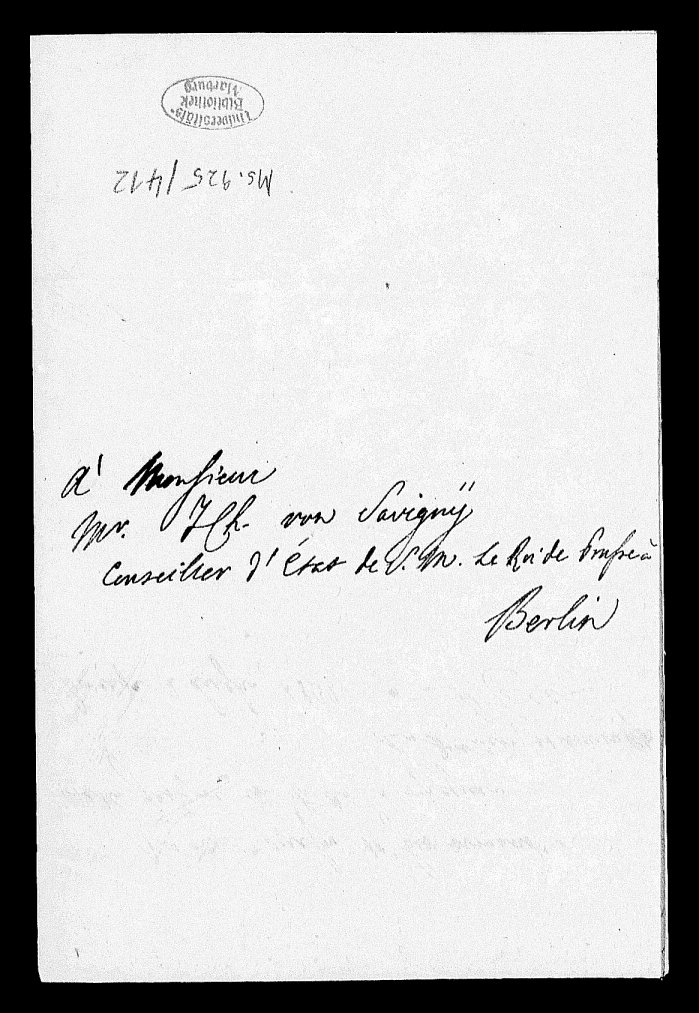 Universitäts-
Bibliothek
Marburg
Ms. 925/412
a' Monsieur
Mr. von Savignÿ
Conseiller d'État de S. M. Le Roi de Prusse à
Berlin